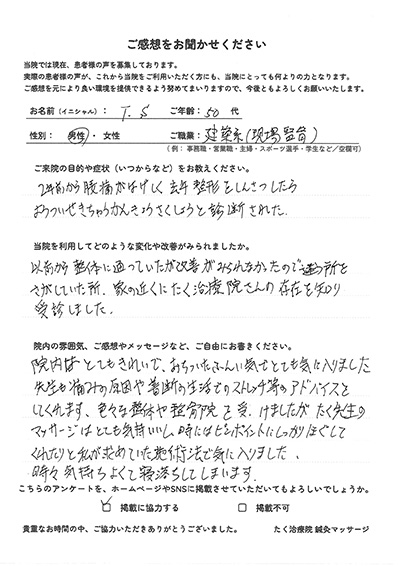 ご感想をお聞かせください
当院では現在、患者様の声を募集しております。
実際の患者様の声が、これから当院をご利用いただく方にも、当院にとっても何よりの力となります。
ご感想を元により良い環境を提供できるよう努めてまいりますので、今後ともよろしくお願いいたします。
お名前(イニシャル): T.S ご年齢: 50 代
性別: 男性・女性 ご職業: 建築系(現場監督)
(例: 事務職・営業職・主婦・スポーツ選手・学生など／空欄可)
ご来院の目的や症状(いつからなど)をお教えください。
2年前から腰痛がはげしく去年整形をしんさつしたら
おうついせきちゅうかんきょうさくしょうと診断された.
当院を利用してどのような変化や改善がみられましたか。
以前から整体に通っていたが改善がみられなかったので違う所を
さがしていた所、家の近くにたく治療院さんの存在を知り
受診しました.
院内の雰囲気、ご感想やメッセージなど、ご自由にお書きください。
院内はとてもきれいで、おちついたふんい気でとても気に入りました
先生も痛みの原因や普断の生活でのストレッチ等のアドバイスを
してくれます、色々な整体や整骨院を受けましたがたく先生の
マッサージはとても気持いいし、時にはピンポイントにしっかりほぐして
くれたりと私が求めていた施術法で気に入りました、
時々気持ちよくて寝落ちしてしまいます.
こちらのアンケートを、ホームページやSNSに掲載させていただいてもよろしいでしょうか。
掲載に協力する 掲載不可
貴重なお時間の中、ご協力いただきありがとうございました。 たく治療院 鍼灸マッサージ